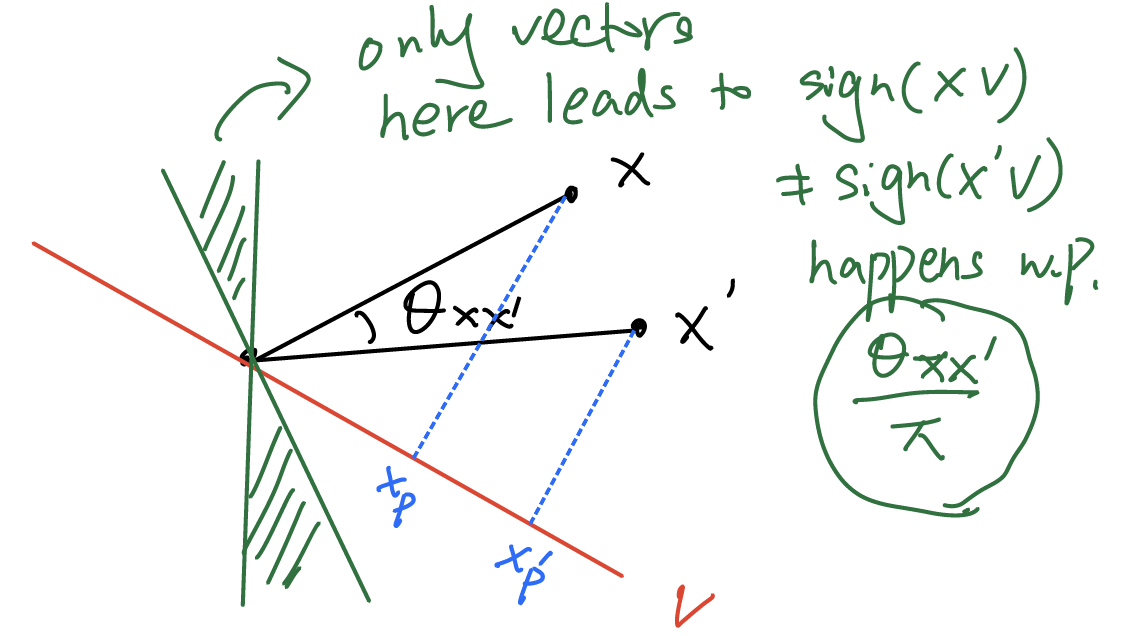 only vectors
here leads to sign(XV)
≠ sign(X'V)
happens w.p.
θxx'
π
X
θxx'
X'
xp
xp'
V